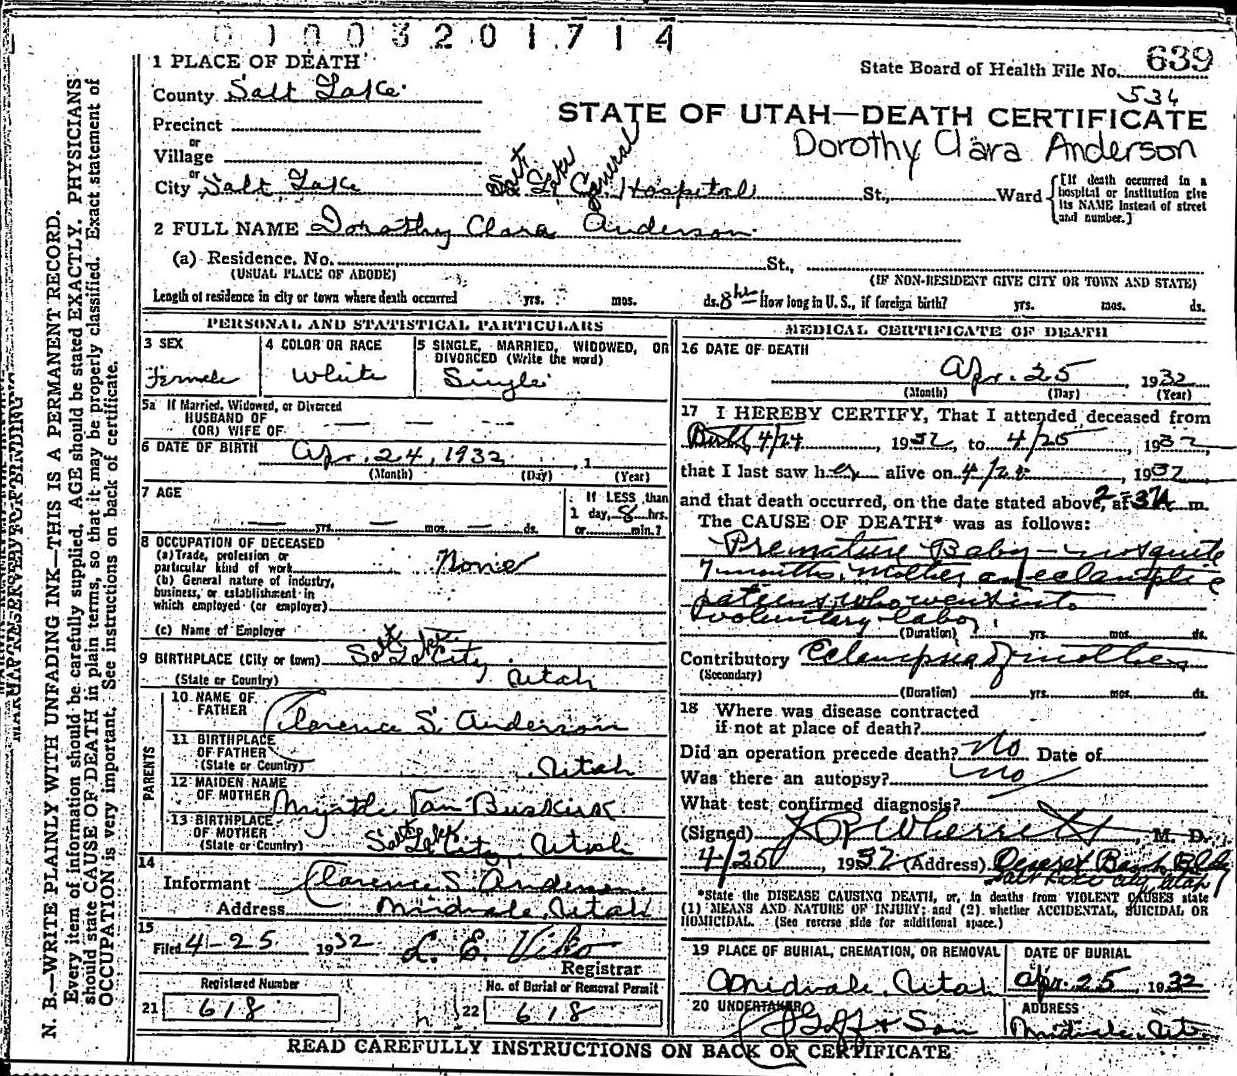 01003201714
1 PLACE OF DEATH
State Board of Health File No. 639
534
County Salt Lake
STATE OF UTAH—DEATH CERTIFICATE
Dorothy Clara Anderson
Precinct
or
Village
or
City Salt Lake Salt Lake General Hospital St., Ward
[If death occurred in a hospital or institution give its NAME instead of street and number.]
2 FULL NAME Dorothy Clara Anderson
(a) Residence. No. St.,
(USUAL PLACE OF ABODE) (IF NON-RESIDENT GIVE CITY OR TOWN AND STATE)
Length of residence in city or town where death occurred yrs. mos. ds. 8 hrs How long in U. S., if foreign birth? yrs. mos. ds.
PERSONAL AND STATISTICAL PARTICULARS
3 SEX
Female
4 COLOR OR RACE
White
5 SINGLE, MARRIED, WIDOWED, OR
DIVORCED (Write the word)
Single
5a If Married, Widowed, or Divorced
HUSBAND OF
(OR) WIFE OF
6 DATE OF BIRTH Apr. 24, 1932, 1
(Month) (Day) (Year)
7 AGE
yrs. mos. ds.
If LESS than
1 day, 8 hrs.
or min.?
8 OCCUPATION OF DECEASED
(a) Trade, profession or
particular kind of work None
(b) General nature of industry,
business, or establishment in
which employed (or employer)
(c) Name of Employer
9 BIRTHPLACE (City or town) Salt Lake City
(State or Country) Utah
PARENTS
10 NAME OF
FATHER Clarence S. Anderson
11 BIRTHPLACE
OF FATHER
(State or Country) Utah
12 MAIDEN NAME
OF MOTHER Myrtle Van Buskirk
13 BIRTHPLACE
OF MOTHER
(State or Country) Salt Lake City, Utah
14
Informant Clarence S. Anderson
Address Midvale, Utah
15
Filed 4-25 1932 L. E. Viko
Registrar
Registered Number
21 618
No. of Burial or Removal Permit
22 618
MEDICAL CERTIFICATE OF DEATH
16 DATE OF DEATH
Apr. 25, 1932
(Month) (Day) (Year)
17 I HEREBY CERTIFY, That I attended deceased from
4/24, 1932, to 4/25, 1932,
that I last saw her alive on 4/25, 1932,
and that death occurred, on the date stated above, at m.
The CAUSE OF DEATH* was as follows:
Premature Baby - not quite
7 months, mother an eclamptic
patient who went into
voluntary labor.
(Duration) yrs. mos. ds.
Contributory Eclampsia of mother
(Secondary)
(Duration) yrs. mos. ds.
18 Where was disease contracted
if not at place of death?
Did an operation precede death? No Date of
Was there an autopsy? no
What test confirmed diagnosis?
(Signed) Wherritt, M. D.
4/25, 1932 (Address) Deseret Bank Bldg
Salt Lake City, Utah
*State the DISEASE CAUSING DEATH, or, in deaths from VIOLENT CAUSES state
(1) MEANS AND NATURE OF INJURY; and (2) whether ACCIDENTAL, SUICIDAL OR
HOMICIDAL. (See reverse side for additional space.)
19 PLACE OF BURIAL, CREMATION, OR REMOVAL
Midvale, Utah
DATE OF BURIAL
Apr. 25, 1932
20 UNDERTAKER
Goff & Son
ADDRESS
Midvale, Ut.
READ CAREFULLY INSTRUCTIONS ON BACK OF CERTIFICATE
MARGIN RESERVED FOR BINDING
N. B.—WRITE PLAINLY WITH UNFADING INK—THIS IS A PERMANENT RECORD.
Every item of information should be carefully supplied. AGE should be stated EXACTLY. PHYSICIANS
should state CAUSE OF DEATH in plain terms, so that it may be properly classified. Exact statement of
OCCUPATION is very important. See instructions on back of certificate.